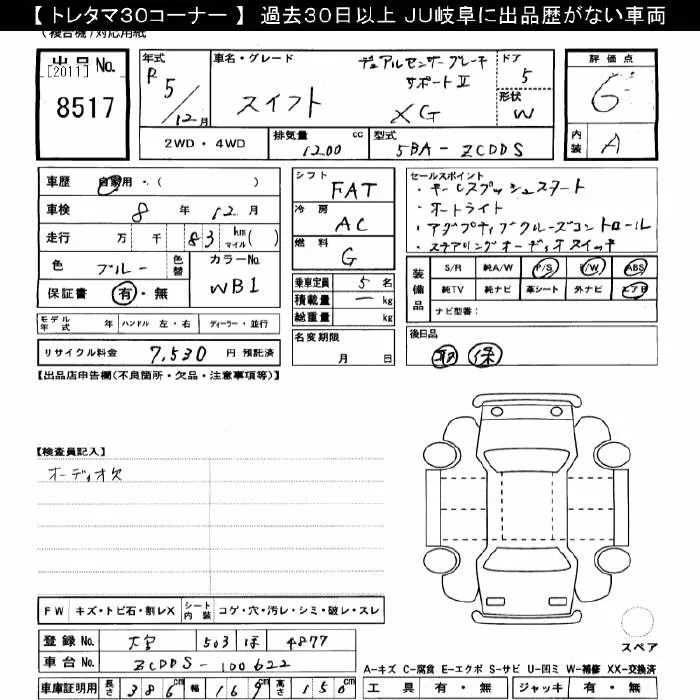 【 トレタマ30コーナー 】 過去30日以上 JU岐阜に出品歴がない車両
(複合機)対応用紙
出品 No.
[2011]
8517
年式
R 5/12月
車名・グレード
スイフト XG
デュアルセンサーブレーキ
サポートⅡ
ドア
5
形状
W
評価点
6
内装
A
2WD ・ 4WD
排気量
1200 cc
型式
5BA-ZCDDS
車歴
自家用・( )
車検
8 年 12 月
走行
万 千 83 km マイル( )
色
ブルー
色替
カラーNo.
WB1
保証書
有・無
モデル年式 年 ハンドル 左・右 ディーラー・並行
リサイクル料金 7,530 円 預託済
シフト
FAT
冷房
AC
燃料
G
乗車定員 5 名
積載量 ー kg
総重量 kg
名変期限
月 日
セールスポイント
・キーレスプッシュスタート
・オートライト
・アダプティブクルーズコントロール
・ステアリングオーディオスイッチ
装備品
S/R 純A/W P/S P/W ABS
純TV 純ナビ 革シート 外ナビ エアB
ナビ型番:
後日品
取 保
【出品店申告欄(不良箇所・欠品・注意事項等)】
【検査員記入】
オーディオ欠
FW キズ・トビ石・割レX シート内装 コゲ・穴・汚レ・シミ・破レ・スレ
登録 No. 大宮 503 ほ 4877
車台 No. ZCDDS-100622
車庫証明用 長さ 386cm 幅 169cm 高さ 150cm
スペア
A-キズ C-腐食 E-エクボ S-サビ U-凹ミ W-補修 XX-交換済
工具 有・無 ジャッキ 有・無